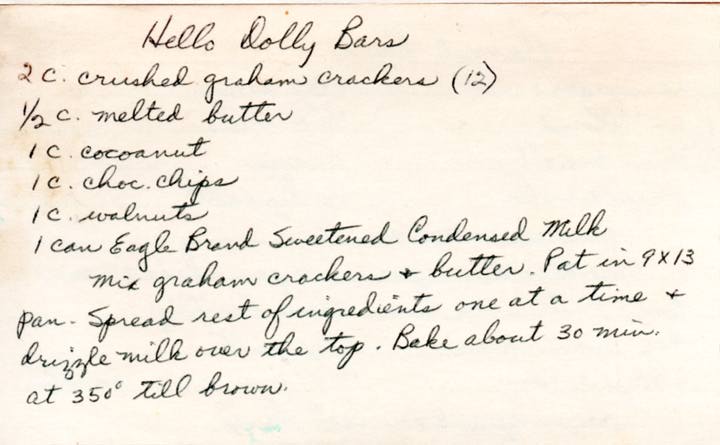 Hello Dolly Bars
2 c. crushed graham crackers (12)
1/2 c. melted butter
1 c. cocoanut
1 c. choc. chips
1 c. walnuts
1 can Eagle Brand Sweetened Condensed Milk
mix graham crackers + butter. Pat in 9x13
pan. Spread rest of ingredients one at a time +
drizzle milk over the top. Bake about 30 min.
at 350° till brown.